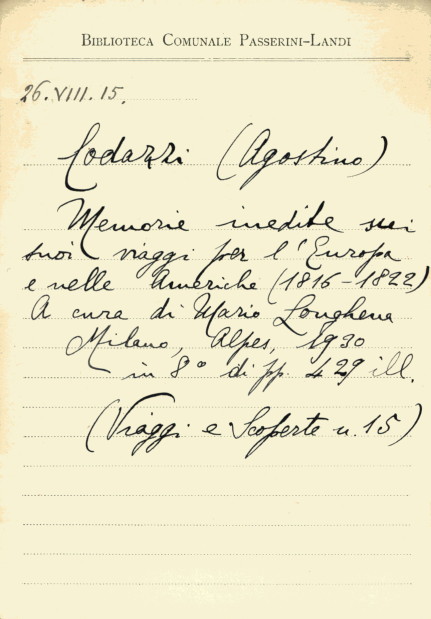 BIBLIOTECA COMUNALE PASSERINI-LANDI
26.VIII.15.
Codazzi (Agostino)
Memorie inedite sui
suoi viaggi per l'Europa
e nelle Americhe (1816-1822)
A cura di Mario Longhena
Milano, Alpes, 1930
in 8° di pp. 429 ill.
(Viaggi e Scoperte n. 15)